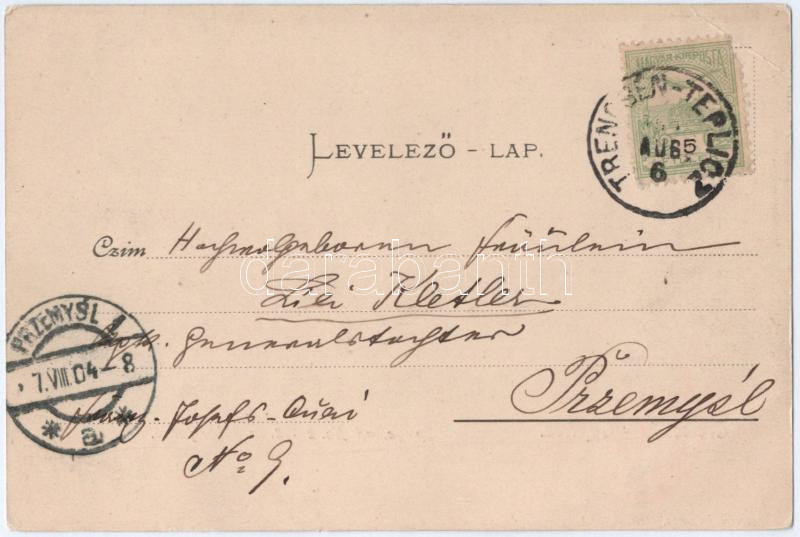 MAGYAR KIR. POSTA
TRENCSÉN-TEPLICZ
AUG 5
6
LEVELEZŐ - LAP.
Czim Hochwolgeboren Fräulein
Lili Kletler
darabanth
Generalstochter
PRZEMYŚL 1
7.VIII.04-8
* a *
Franz-Josefs-Quai
No 9.
Przemyśl